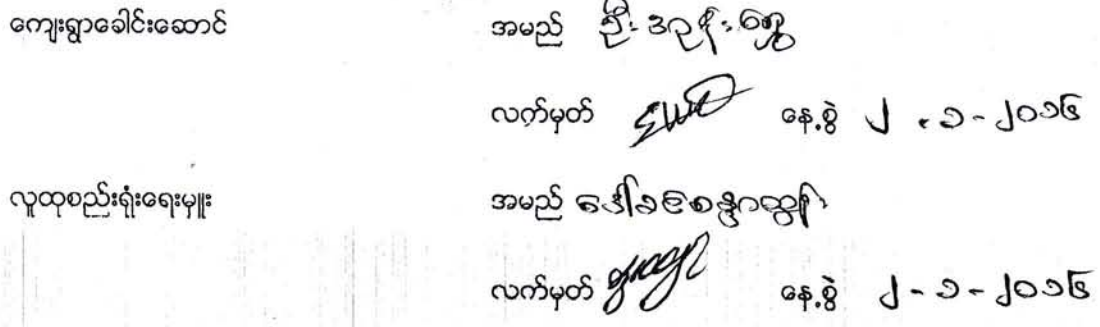 ကျေးရွာခေါင်းဆောင် အမည် ဦး
လက်မှတ် နေ့စွဲ ၂-၁-၂၀၁၆
လူထုစည်းရုံးရေးမှူး အမည် ဒေါ်
လက်မှတ် နေ့စွဲ ၂-၁-၂၀၁၆